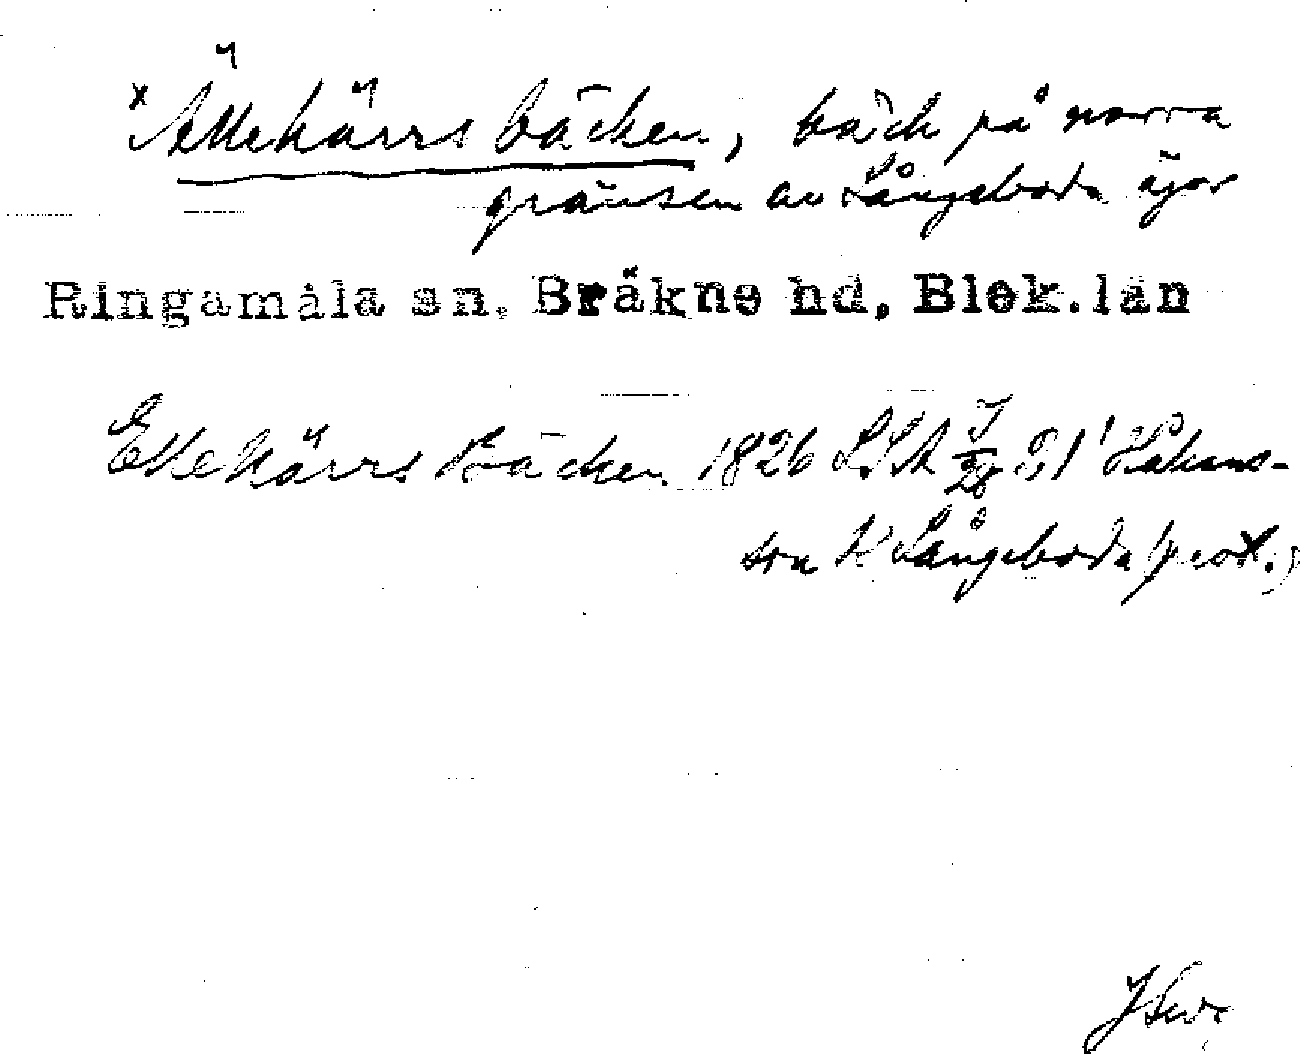 x Ällekärrsbäcken, bäck på norra
gränsen av Långeboda ägor
Ringamåla sn. Bräkne hd, Blek.län
Ellekärrs Bäcken 1826 LSA Håkans-
son K Långeboda (prot.)